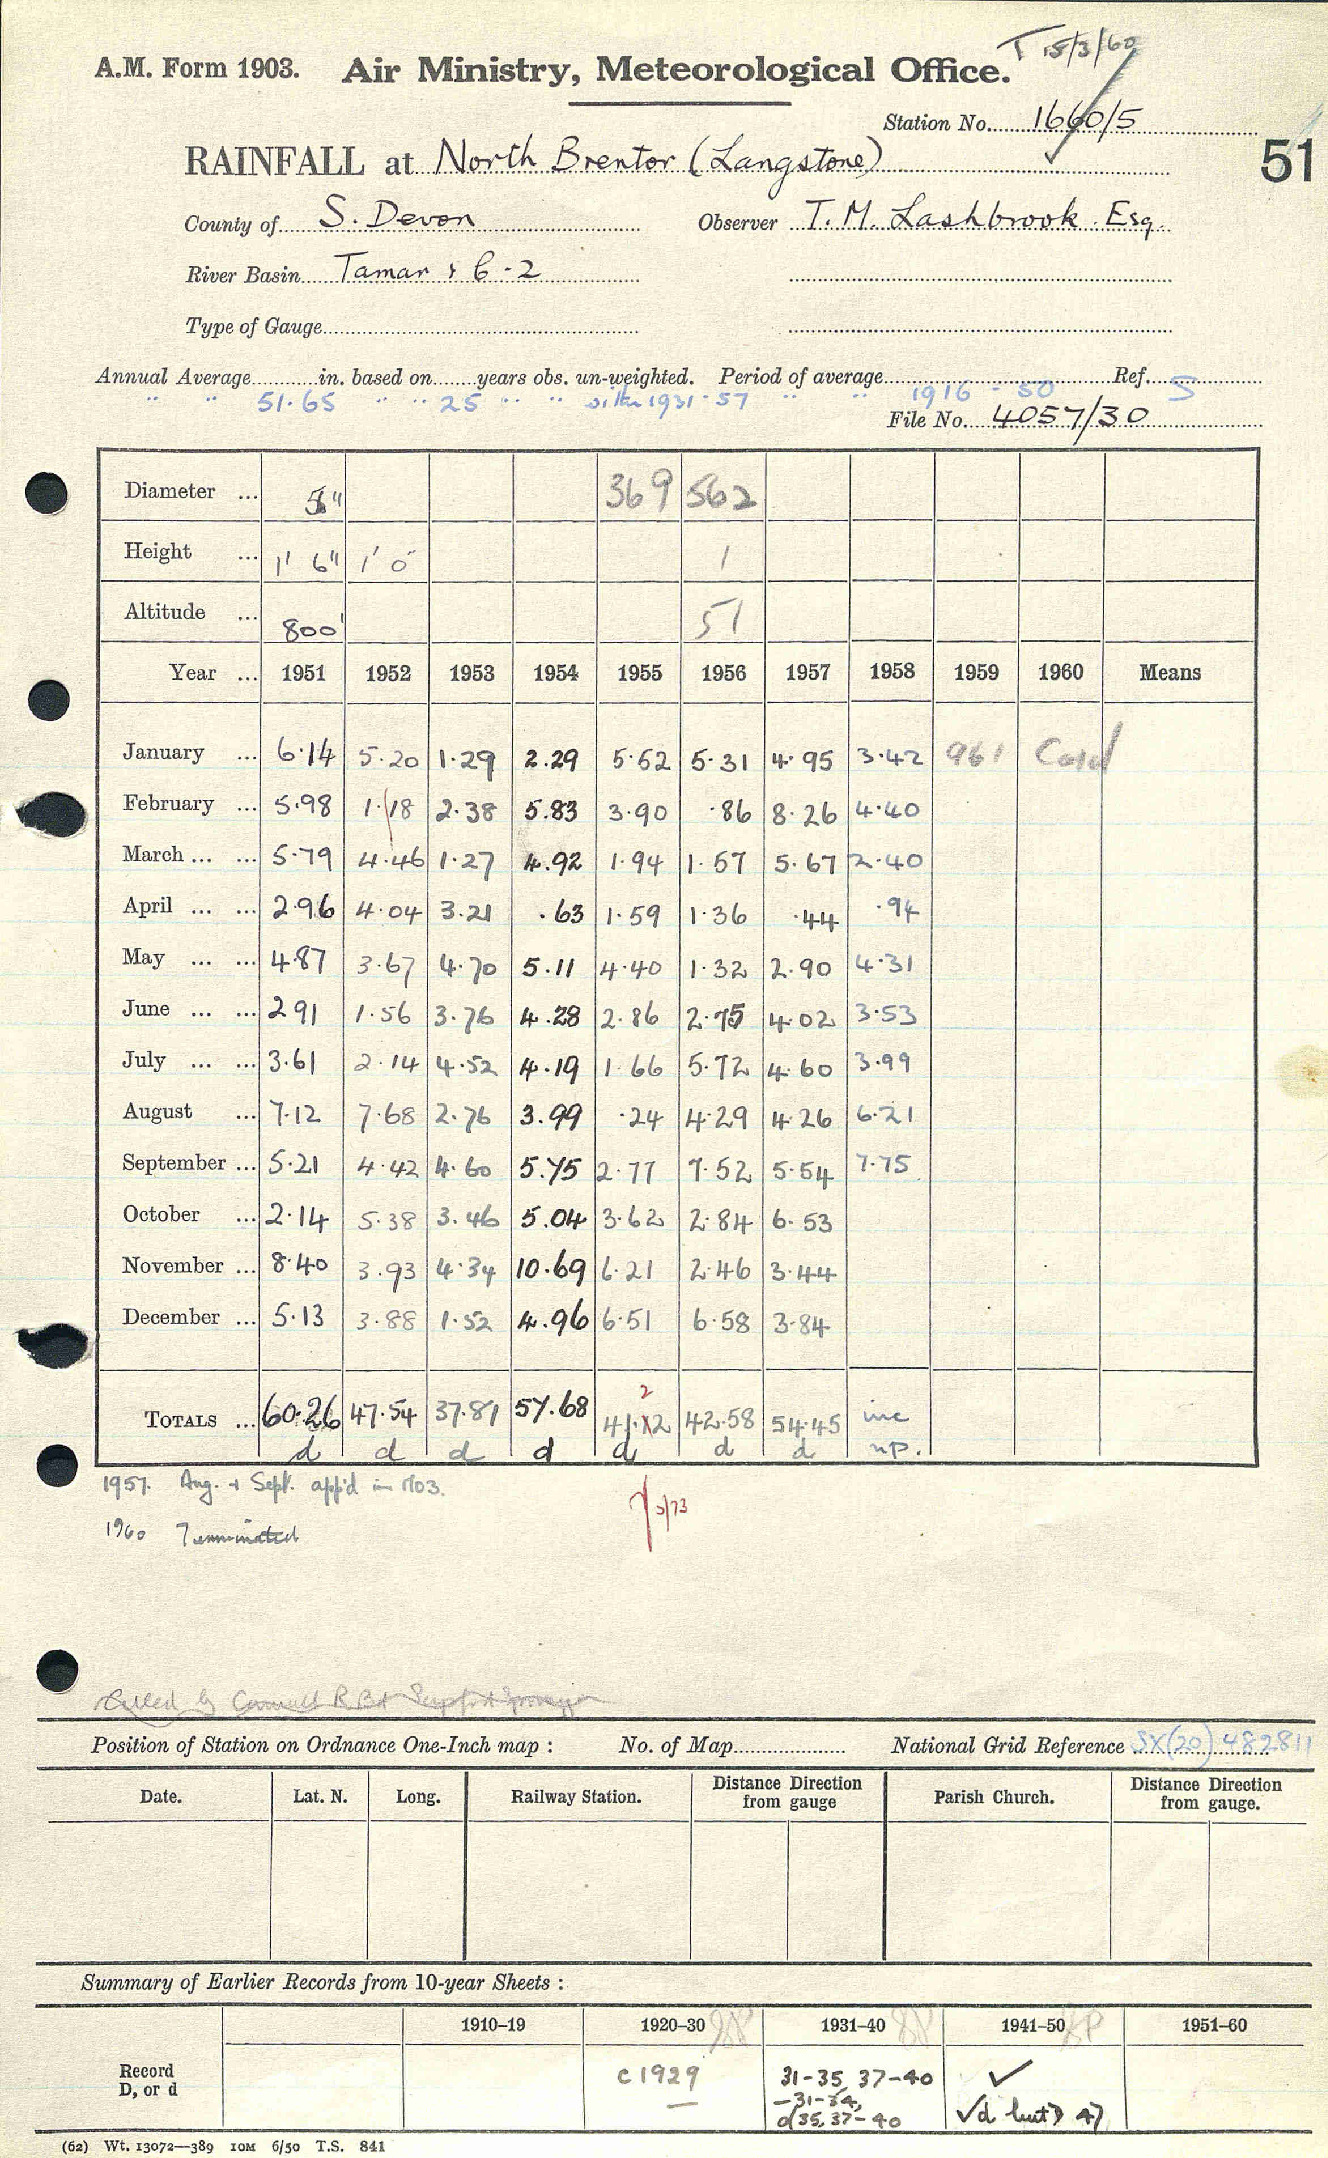 T 15/3/60
A.M. Form 1903. Air Ministry, Meteorological Office.
Station No. 1660/5
51
RAINFALL at North Brentor (Langstone)
County of S. Devon Observer T. M. Lashbrook Esq
River Basin Tamar & 6-2
Type of Gauge
Annual Average in. based on years obs. un-weighted. Period of average Ref.
" " 51.65 " " 25 " " within 1931-57 " " 1916 - 50 S
File No. 4057/30
Diameter ... 5" 369 562
Height ... 1' 6" 1' 0" 1
Altitude ... 800' 51
Year ... 1951 1952 1953 1954 1955 1956 1957 1958 1959 1960 Means
January ... 6.14 5.20 1.29 2.29 5.52 5.31 4.95 3.42 961 Card
February ... 5.98 1.18 2.38 5.83 3.90 .86 8.26 4.40
March ... ... 5.79 4.46 1.27 4.92 1.94 1.57 5.67 2.40
April ... ... 2.96 4.04 3.21 .63 1.59 1.36 .44 .94
May ... ... 4.87 3.67 4.70 5.11 4.40 1.32 2.90 4.31
June ... ... 2.91 1.56 3.76 4.28 2.86 2.75 4.02 3.53
July ... ... 3.61 2.14 4.52 4.19 1.66 5.72 4.60 3.99
August ... 7.12 7.68 2.76 3.99 .24 4.29 4.26 6.21
September ... 5.21 4.42 4.60 5.75 2.77 7.52 5.54 7.75
October ... 2.14 5.38 3.46 5.04 3.62 2.84 6.53
November ... 8.40 3.93 4.34 10.69 6.21 2.46 3.44
December ... 5.13 3.88 1.52 4.96 6.51 6.58 3.84
2
TOTALS ... 60.26 47.54 37.81 57.68 41.12 42.58 54.45 inc
d d d d d d d np.
1957. Aug. & Sept. app'd in 1703.
3/73
1960 Terminated
Position of Station on Ordnance One-Inch map : No. of Map National Grid Reference SX(20) 482811
Date. Lat. N. Long. Railway Station. Distance from gauge Direction Parish Church. Distance from gauge. Direction
Summary of Earlier Records from 10-year Sheets :
1910–19 1920–30 1931–40 1941–50 1951–60
Record D, or d c 1929 31-35, 37-40 ✓
-31-34, d35, 37-40 ✓d but
(62) Wt. 13072—389 10M 6/50 T.S. 841